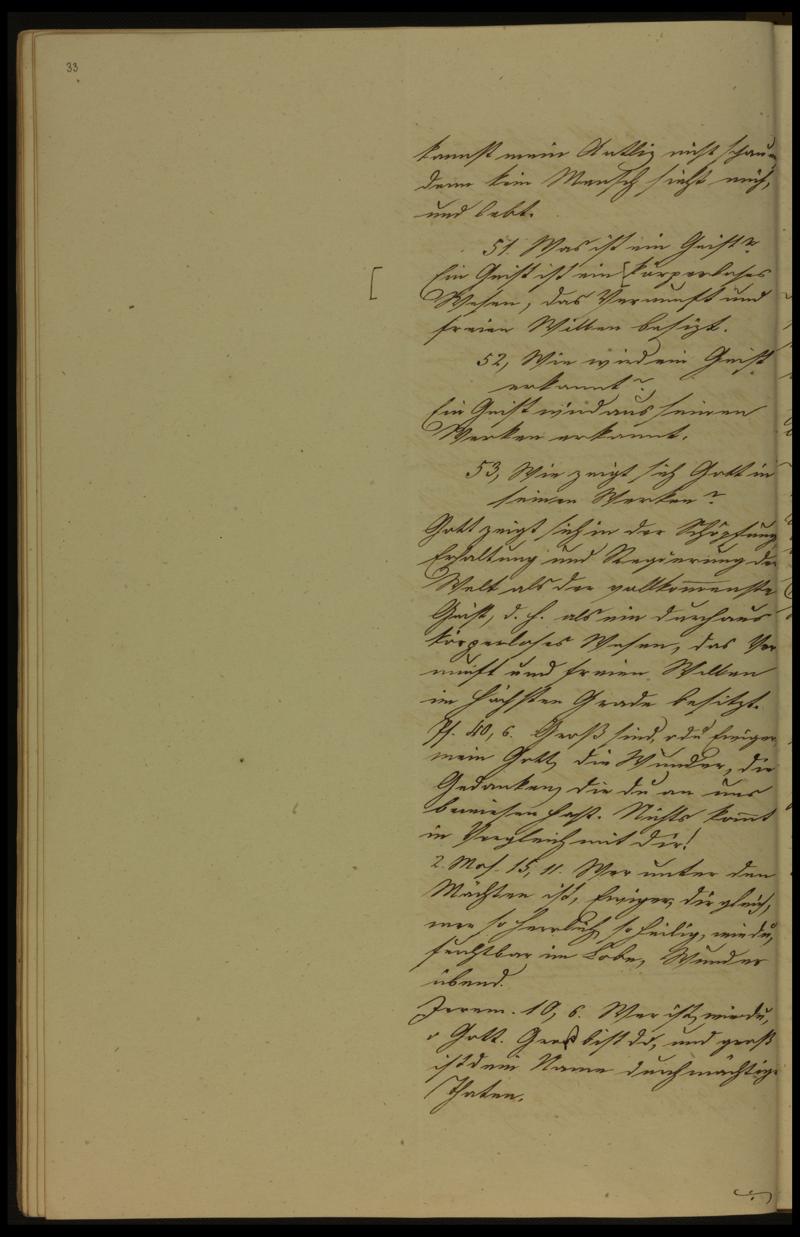 33
kannst mein Antliz nicht schauen
denn kein Mensch sieht mich,
und lebt.
51. Was ist ein Geist?
Ein Geist ist ein [körperloses
[
Wesen, das Vernunft und
freien Willen besizt.
52, Wie wird ein Geist
erkannt?
Ein Geist wird aus seinen
Werken erkannt.
53, Wie zeigt sich Gott in
seinen Werken?
Gott zeigt sich in der Schöpfung
Erhaltung und Regierung der
Welt als der vollkommenste
Geist, d. h. als ein durchaus
körperloses Wesen, das Ver
nunft und freien Willen
im höchsten Grade besitzt.
Ps. 40, 6. Groß sind, o du Ewiger
mein Gott, die Wunder, die
Gedanken, die du an uns
bewiesen hast. Nichts kommt
in Vergleich mit dir!
2. Mos. 15, 11. Wer unter den
Mächten ist, Ewiger, dir gleich,
wer so herrlich, so heilig, wie du,
furchtbar im Lobe, Wunder
übend.
Jerem. 10, 6. Wer ist, wie du,
o Gott. Gros bist du, und groß
ist dein Name durch mächtige
Thaten.